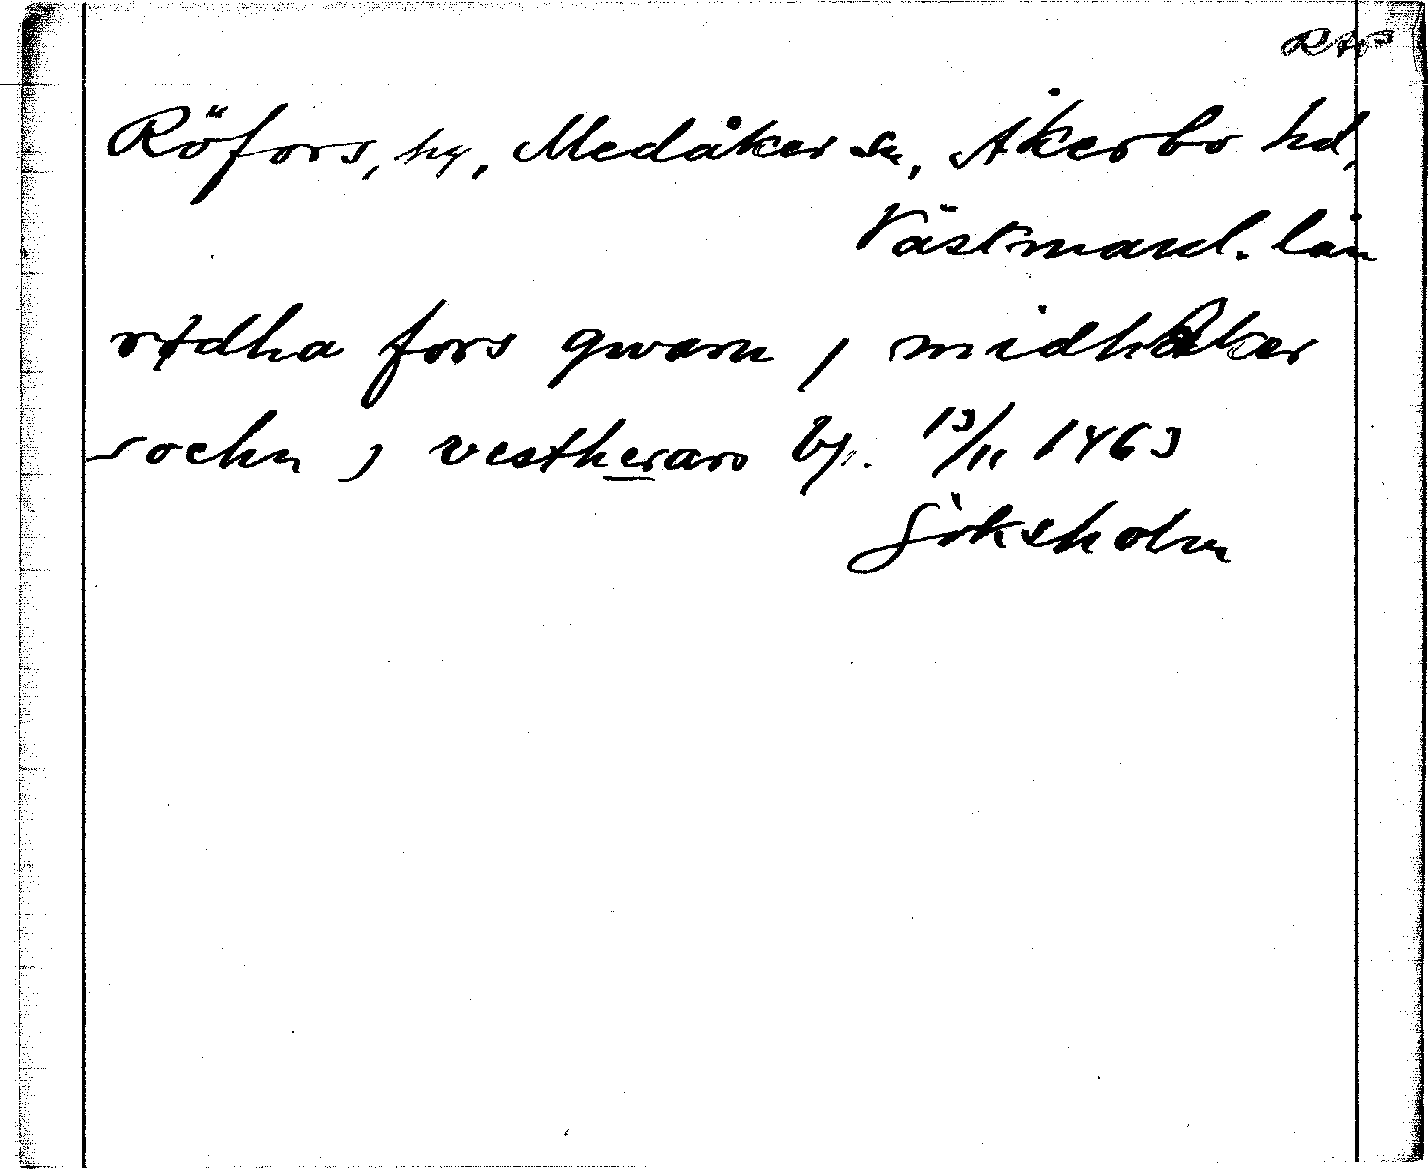 RAP
Röfors, hg, Medåker sn, Åkerbo hd,
Västmanl. län
rødha fors qwarn j midhaker
sochn j vestheraro bj. 13/11 1463
Göksholm